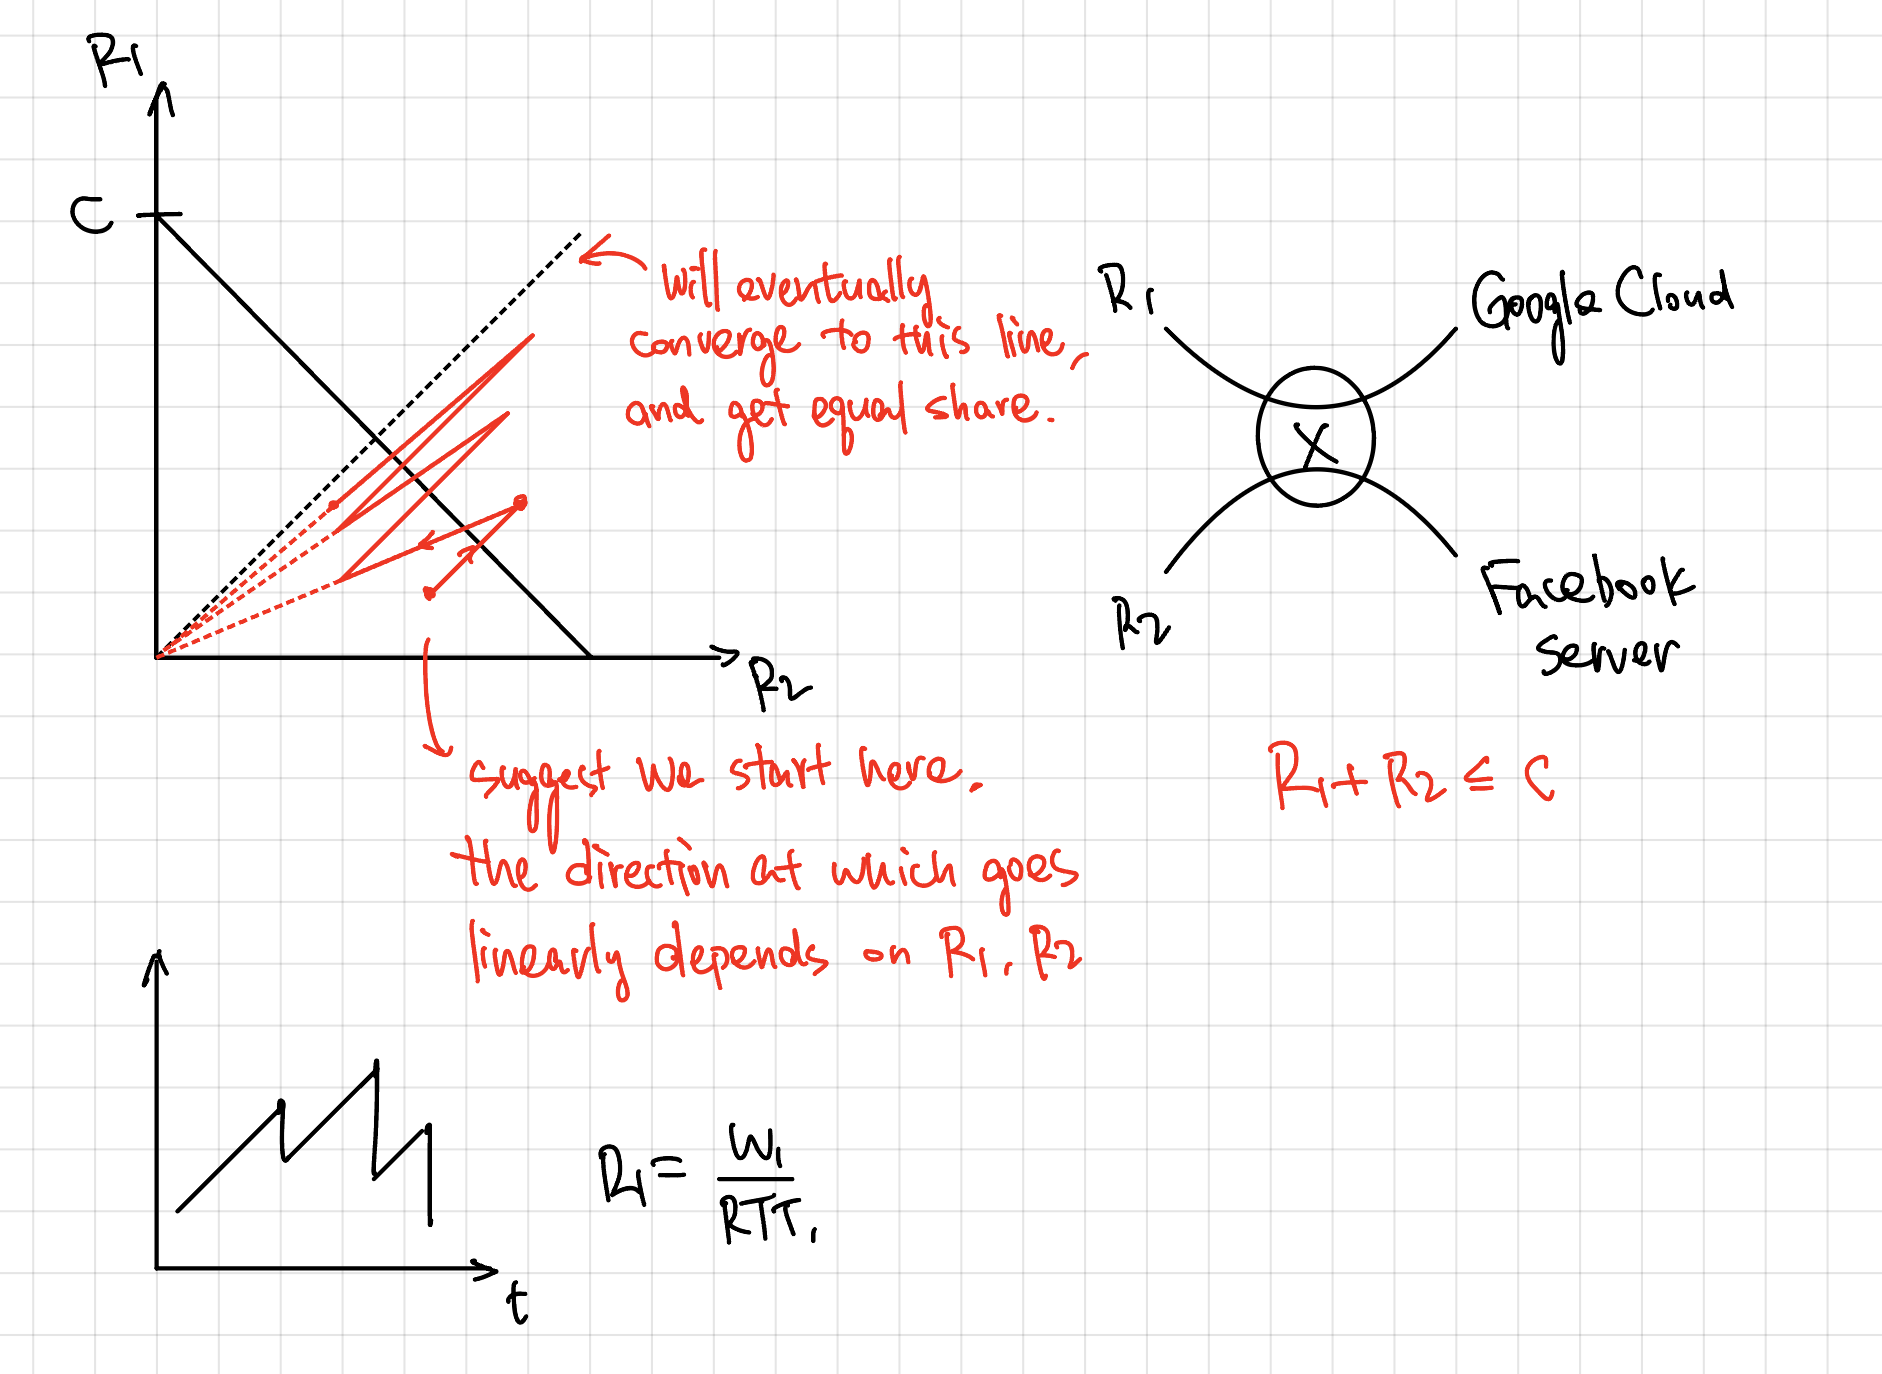 R1
C
will eventually
converge to this line,
and get equal share.
R2
suggest we start here.
the direction at which goes
linearly depends on R1, R2
R1
Google Cloud
X
R2
Facebook
server
R1 + R2 ≤ C
t
R1 = W1 / RTT1